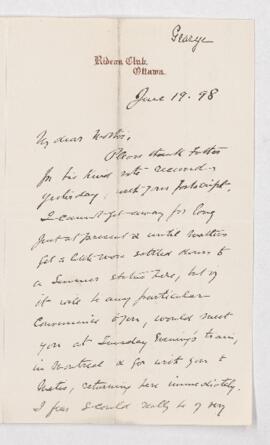 George
Rideau Club,
Ottawa.
June 19. 98
My dear Mother,
Please thank Father
for his kind note received
yesterday with your postscript.
I cannot get away for long
just at present & until matters
get a little more settled down to
a Summer status here, but if
it will be any particular
convenience to you, would meet
you at Sunday Evening's train,
in Montreal & go with you &
returning here immediately.
I fear I could really be of very